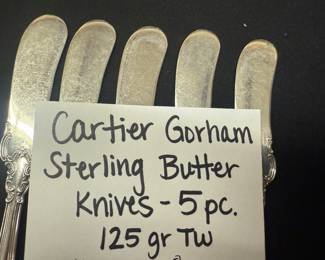 Cartier Gorham
Sterling Butter
Knives - 5 pc.
125 gr TW